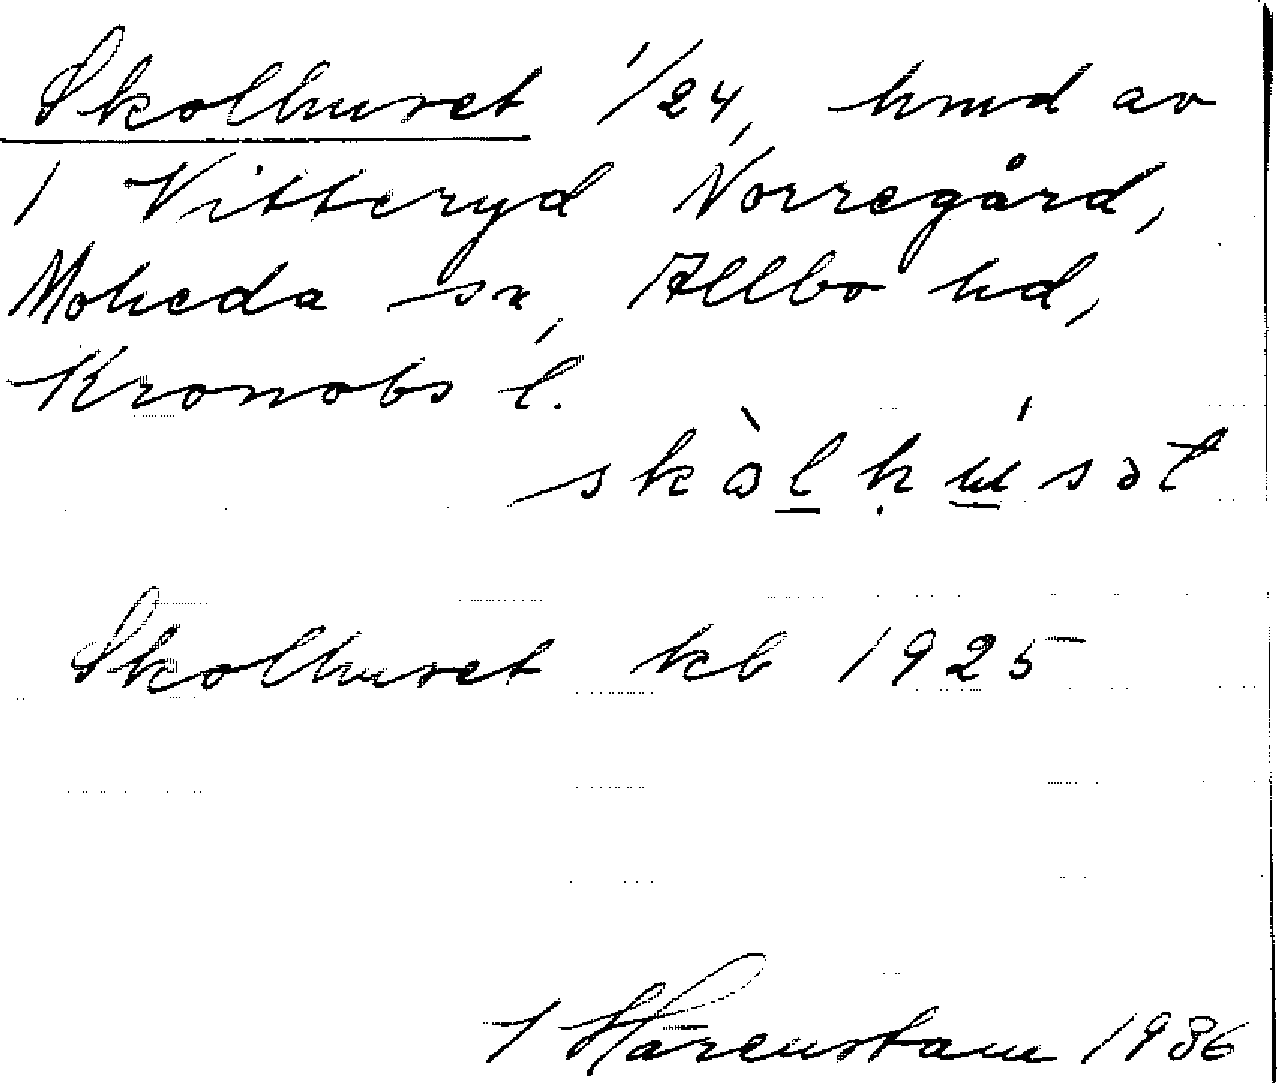 Skolhuset 1/24, hmd av
1 Vitteryd Norregård,
Moheda sn, Allbo hd,
Kronobs l.
skòlhúsət
Skolhuset kb 1925
1 Hårenstam 1936